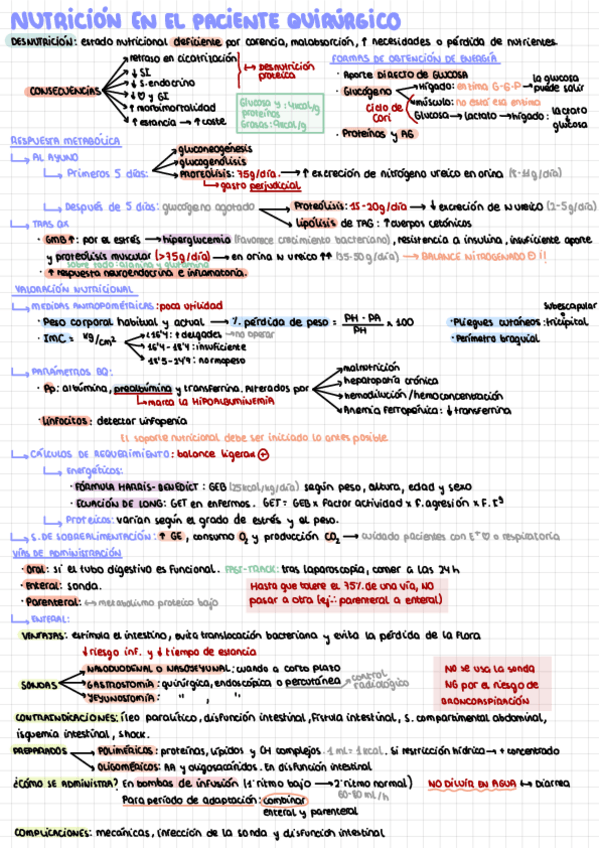 NUTRICIÓN EN EL PACIENTE QUIRÚRGICO
DESNUTRICIÓN: estado nutricional deficiente por carencia, malabsorción, ↑ necesidades o pérdida de nutrientes.
CONSECUENCIAS
retraso en cicatrización
↓ SI
↓ S. endocrino
↓ ♡ y GI
↑ morbimortalidad
↑ estancia → ↑ coste
→ DESNUTRICIÓN proteica
Glucosa y proteínas: 4kcal/g
Grasas: 9kcal/g
FORMAS DE OBTENCIÓN DE ENERGÍA
· Aporte DIRECTO DE GLUCOSA
· Glucógeno
Hígado: entima G-6-P → la glucosa puede salir
músculo: no está esa entima
Ciclo de Cori
Glucosa → lactato → hígado: lactato ↓ glucosa
· Proteínas y AG
RESPUESTA METABÓLICA
AL AYUNO
Primeros 5 días:
gluconeogénesis
glucogenólisis
PROTEÓLISIS: 75g/día. → ↑ excreción de nitrógeno ureico en orina (8-11g/día)
gasto perjudicial
Después de 5 días: glucógeno agotado
Proteólisis: 15-20g/día → ↓ excreción de N ureico (2-5g/día)
Lipólisis de TAG: ↑ cuerpos cetónicos
TRAS QX
· GMB ↑: por el estrés → hiperglucemia (favorece crecimiento bacteriano), resistencia a insulina, insuficiente aporte
y proteólisis muscular (>75g/día) → en orina N ureico ↑↑ (35-50g/día) → BALANCE NITROGENADO ⊖!!
sobre todo: alanina y glutamina
· ↑ respuesta neuroendocrina e inflamatoria.
VALORACIÓN NUTRICIONAL
MEDIDAS ANTROPOMÉTRICAS: poca utilidad
· Peso corporal habitual y actual → % pérdida de peso = PH - PA / PH x 100
· IMC = kg/cm²
<16'4: ↑ delgadez → no operar
16'4-18'4: insuficiente
18'5-24'9: normopeso
· Pliegues cutáneos: subescapular tricipital
· Perímetro braquial
PARÁMETROS BQ:
· Pp: albúmina, prealbúmina y transferrina. Alterados por
marca la HIPOALBUMINEMIA
malnutrición
hepatopatía crónica
hemodilución/hemoconcentración
Anemia ferropénica: ↓ transferrina
· Linfocitos: detectar linfopenia
El soporte nutricional debe ser iniciado lo antes posible
CÁLCULOS DE REQUERIMIENTO: balance ligera ⊕
Energéticos:
· FÓRMULA HARRIS-BENEDICT: GEB (25kcal/kg/día) según peso, altura, edad y sexo
· ECUACIÓN DE LONG: GET en enfermos. GET = GEB x Factor actividad x F. agresión x F. Tª
Proteicos: varían según el grado de estrés y al peso.
S. DE SOBREALIMENTACIÓN: ↑ GE, consumo O₂ y producción CO₂ → cuidado pacientes con Eⁿ ♡ o respiratoria
VÍAS DE ADMINISTRACIÓN
· Oral: si el tubo digestivo es funcional. FAST-TRACK: tras laparoscopia, comer a las 24 h
· Enteral: sonda.
· Parenteral: ↔ metabolismo proteico bajo
Hasta que tolere el 75% de una vía, NO pasar a otra (ej: parenteral a enteral)
ENTERAL:
VENTAJAS: estimula el intestino, evita translocación bacteriana y evita la pérdida de la flora
↓ riesgo inf. y ↓ tiempo de estancia
SONDAS
NASODUODENAL O NASOYEYUNAL: cuando a corto plazo
GASTROSTOMÍA: quirúrgica, endoscópica o percutánea → control radiológico
YEYUNOSTOMÍA: " , " , "
NO se usa la sonda NG por el riesgo de BRONCOASPIRACIÓN
CONTRAINDICACIONES: íleo paralítico, disfunción intestinal, fístula intestinal, s. compartimental abdominal,
isquemia intestinal, shock.
PREPARADOS
POLIMÉRICOS: proteínas, lípidos y CH complejos. 1 ml = 1 kcal. Si restricción hídrica → + concentrado
OLIGOMÉRICOS: AA y oligosacáridos. En disfunción intestinal
¿CÓMO SE ADMINISTRA? En bombas de infusión (1º ritmo bajo → 2º ritmo normal) NO DILUIR EN AGUA ↔ Diarrea
60-80 ml/h
Para periodo de adaptación: combinar enteral y parenteral
COMPLICACIONES: mecánicas, infección de la sonda y disfunción intestinal